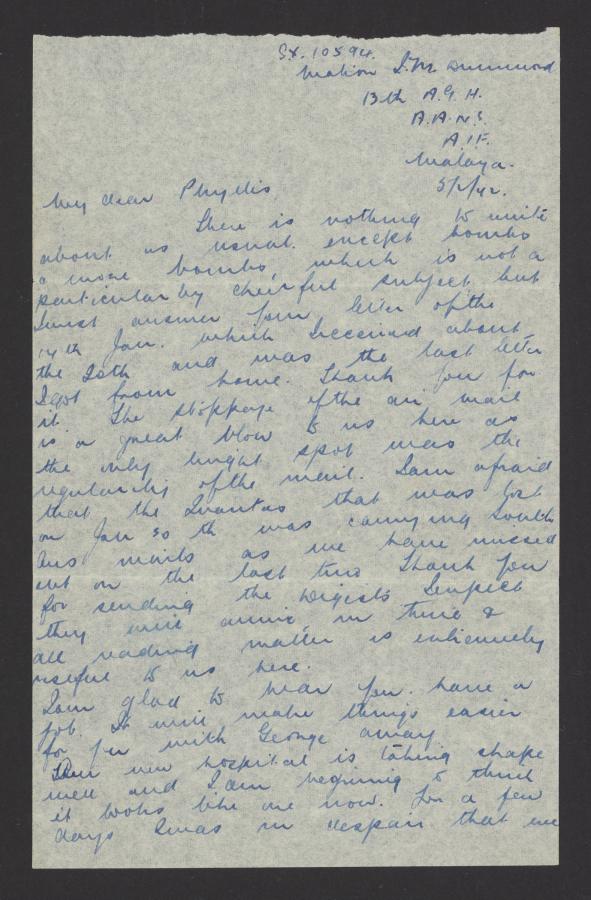 SX. 10594.
Matron I. M. Drummond
13th A.G.H.
A.A.N.S.
A.I.F.
Malaya.
5/2/42.
My dear Phyllis,
There is nothing to write
about as usual except bombs
& more bombs, which is not a
particularly cheerful subject, but
I must answer your letter of the
14th Jan. which I received about
the 20th and was the last letter
I got from home. Thank you for
it. The stoppage of the air mail
is a great blow to us here as
the only bright spot was the
regularity of the mail. I am afraid
that the Quantas that was lost
on Jan 30th was carrying South
Aus mails as we have missed
out on the last two Thank you
for sending the Digests I expect
they will arrive in time &
all reading matter is extremely
useful to us here.
I am glad to hear you have a
job. It will make things easier
for you with George away
Our new hospital is taking shape
well and I am beginning to think
it looks like one now. For a few
days I was in despair that we